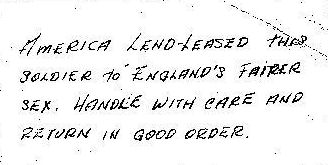 AMERICA LEND-LEASED THIS
SOLDIER TO ENGLAND'S FAIRER
SEX. HANDLE WITH CARE AND
RETURN IN GOOD ORDER.